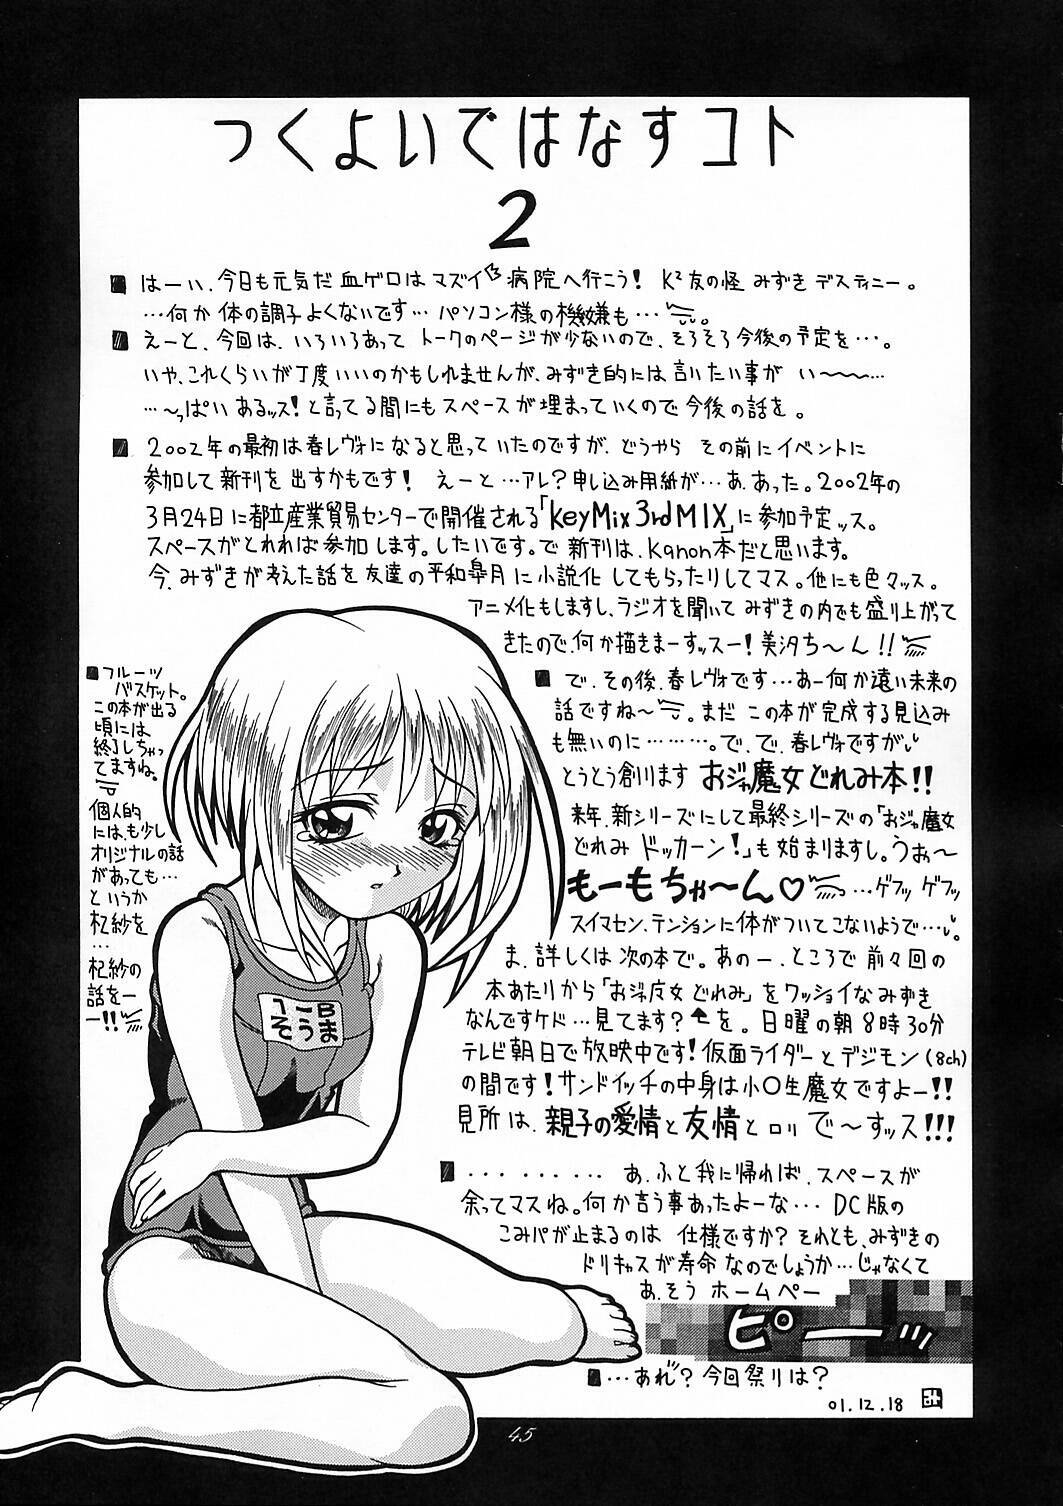 つくよいではなすコト
2
■ はーい、今日も元気だ血ゲロはマズイ 病院へ行こう! K²友の怪 みずき デスティニー。
…何か体の調子よくないです… パソコン様の機嫌も…。
■ えーと、今回は、いろいろあって トークのページが少ないので、そろそろ今後の予定を…。
いや、これくらいが丁度いいのかもしれませんが、みずき的には言いたい事が い〜〜〜…
…〜っぱい あるッス! と言ってる間にもスペースが埋まっていくので今後の話を。
■ 2002年の最初は春レヴォになると思っていたのですが、どうやら その前にイベントに
参加して新刊を出すかもです! えーと…アレ?申し込み用紙が…あ、あった。2002年の
3月24日に都立産業貿易センターで開催される「KeyMix 3rd MIX」に参加予定ッス。
スペースがとれれば参加します。したいです。で 新刊は、Kanon本だと思います。
今、みずきが考えた話を友達の平和皐月に小説化してもらったりしてマス。他にも色々ッス。
アニメ化もしますし、ラジオを聞いて みずきの内でも盛り上がって
きたので、何か描きまーすッスー! 美汐ち〜ん!!
■ で、その後、春レヴォです…あー何か遠い未来の
話ですね〜。まだ この本が完成する見込み
も無いのに………。で、で、春レヴォですがい
とうとう創ります おジャ魔女どれみ本!!
来年、新シリーズにして最終シリーズの「おジャ魔女
どれみ ドッカーン!」も始まりますし。うぉ〜
もーもちゃ〜ん♡ …ゲフッ ゲフッ
スイマセン、テンションに体がついてこないようで…。
ま、詳しくは次の本で。あのー、ところで 前々回の
本あたりから「おジャ魔女どれみ」をワッショイなみずき
なんですケド…見てます? ↑を。日曜の朝8時30分
テレビ朝日で放映中です! 仮面ライダーとデジモン(8ch)
の間です! サンドイッチの中身は小〇生魔女ですよー!!
見所は、親子の愛情と友情とロリ で〜すッス!!!
■ ......... あ、ふと我に帰れば、スペースが
余ってマスね。何か言う事あったよーな… DC版の
こみパが止まるのは 仕様ですか? それとも、みずきの
ドリキャスが寿命なのでしょうか…じゃなくて
あ、そう ホームペー
ピーッ
■ …あれ"? 今回祭りは?
01.12.18 み
■フルーツ
バスケット。
この本が出る
頃には
終了しちゃっ
てますね。
個人的
には、も少し
オリジナルの話
があっても…
というか
杞紗を
…
杞紗の
話をー
ー!!
1B
そうま
45